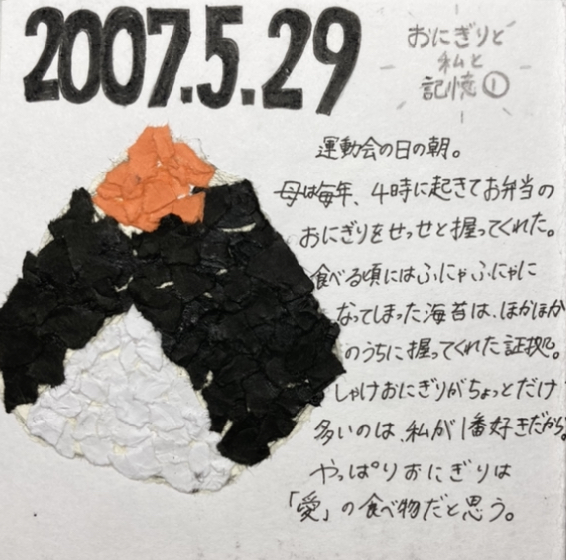 2007.5.29
おにぎりと
私と
記憶①
運動会の日の朝。
母は毎年、4時に起きてお弁当の
おにぎりをせっせと握ってくれた。
食べる頃にはふにゃふにゃに
なってしまった海苔は、ほかほか
のうちに握ってくれた証拠。
しゃけおにぎりがちょっとだけ
多いのは、私が1番好きだから。
やっぱりおにぎりは
「愛」の食べ物だと思う。